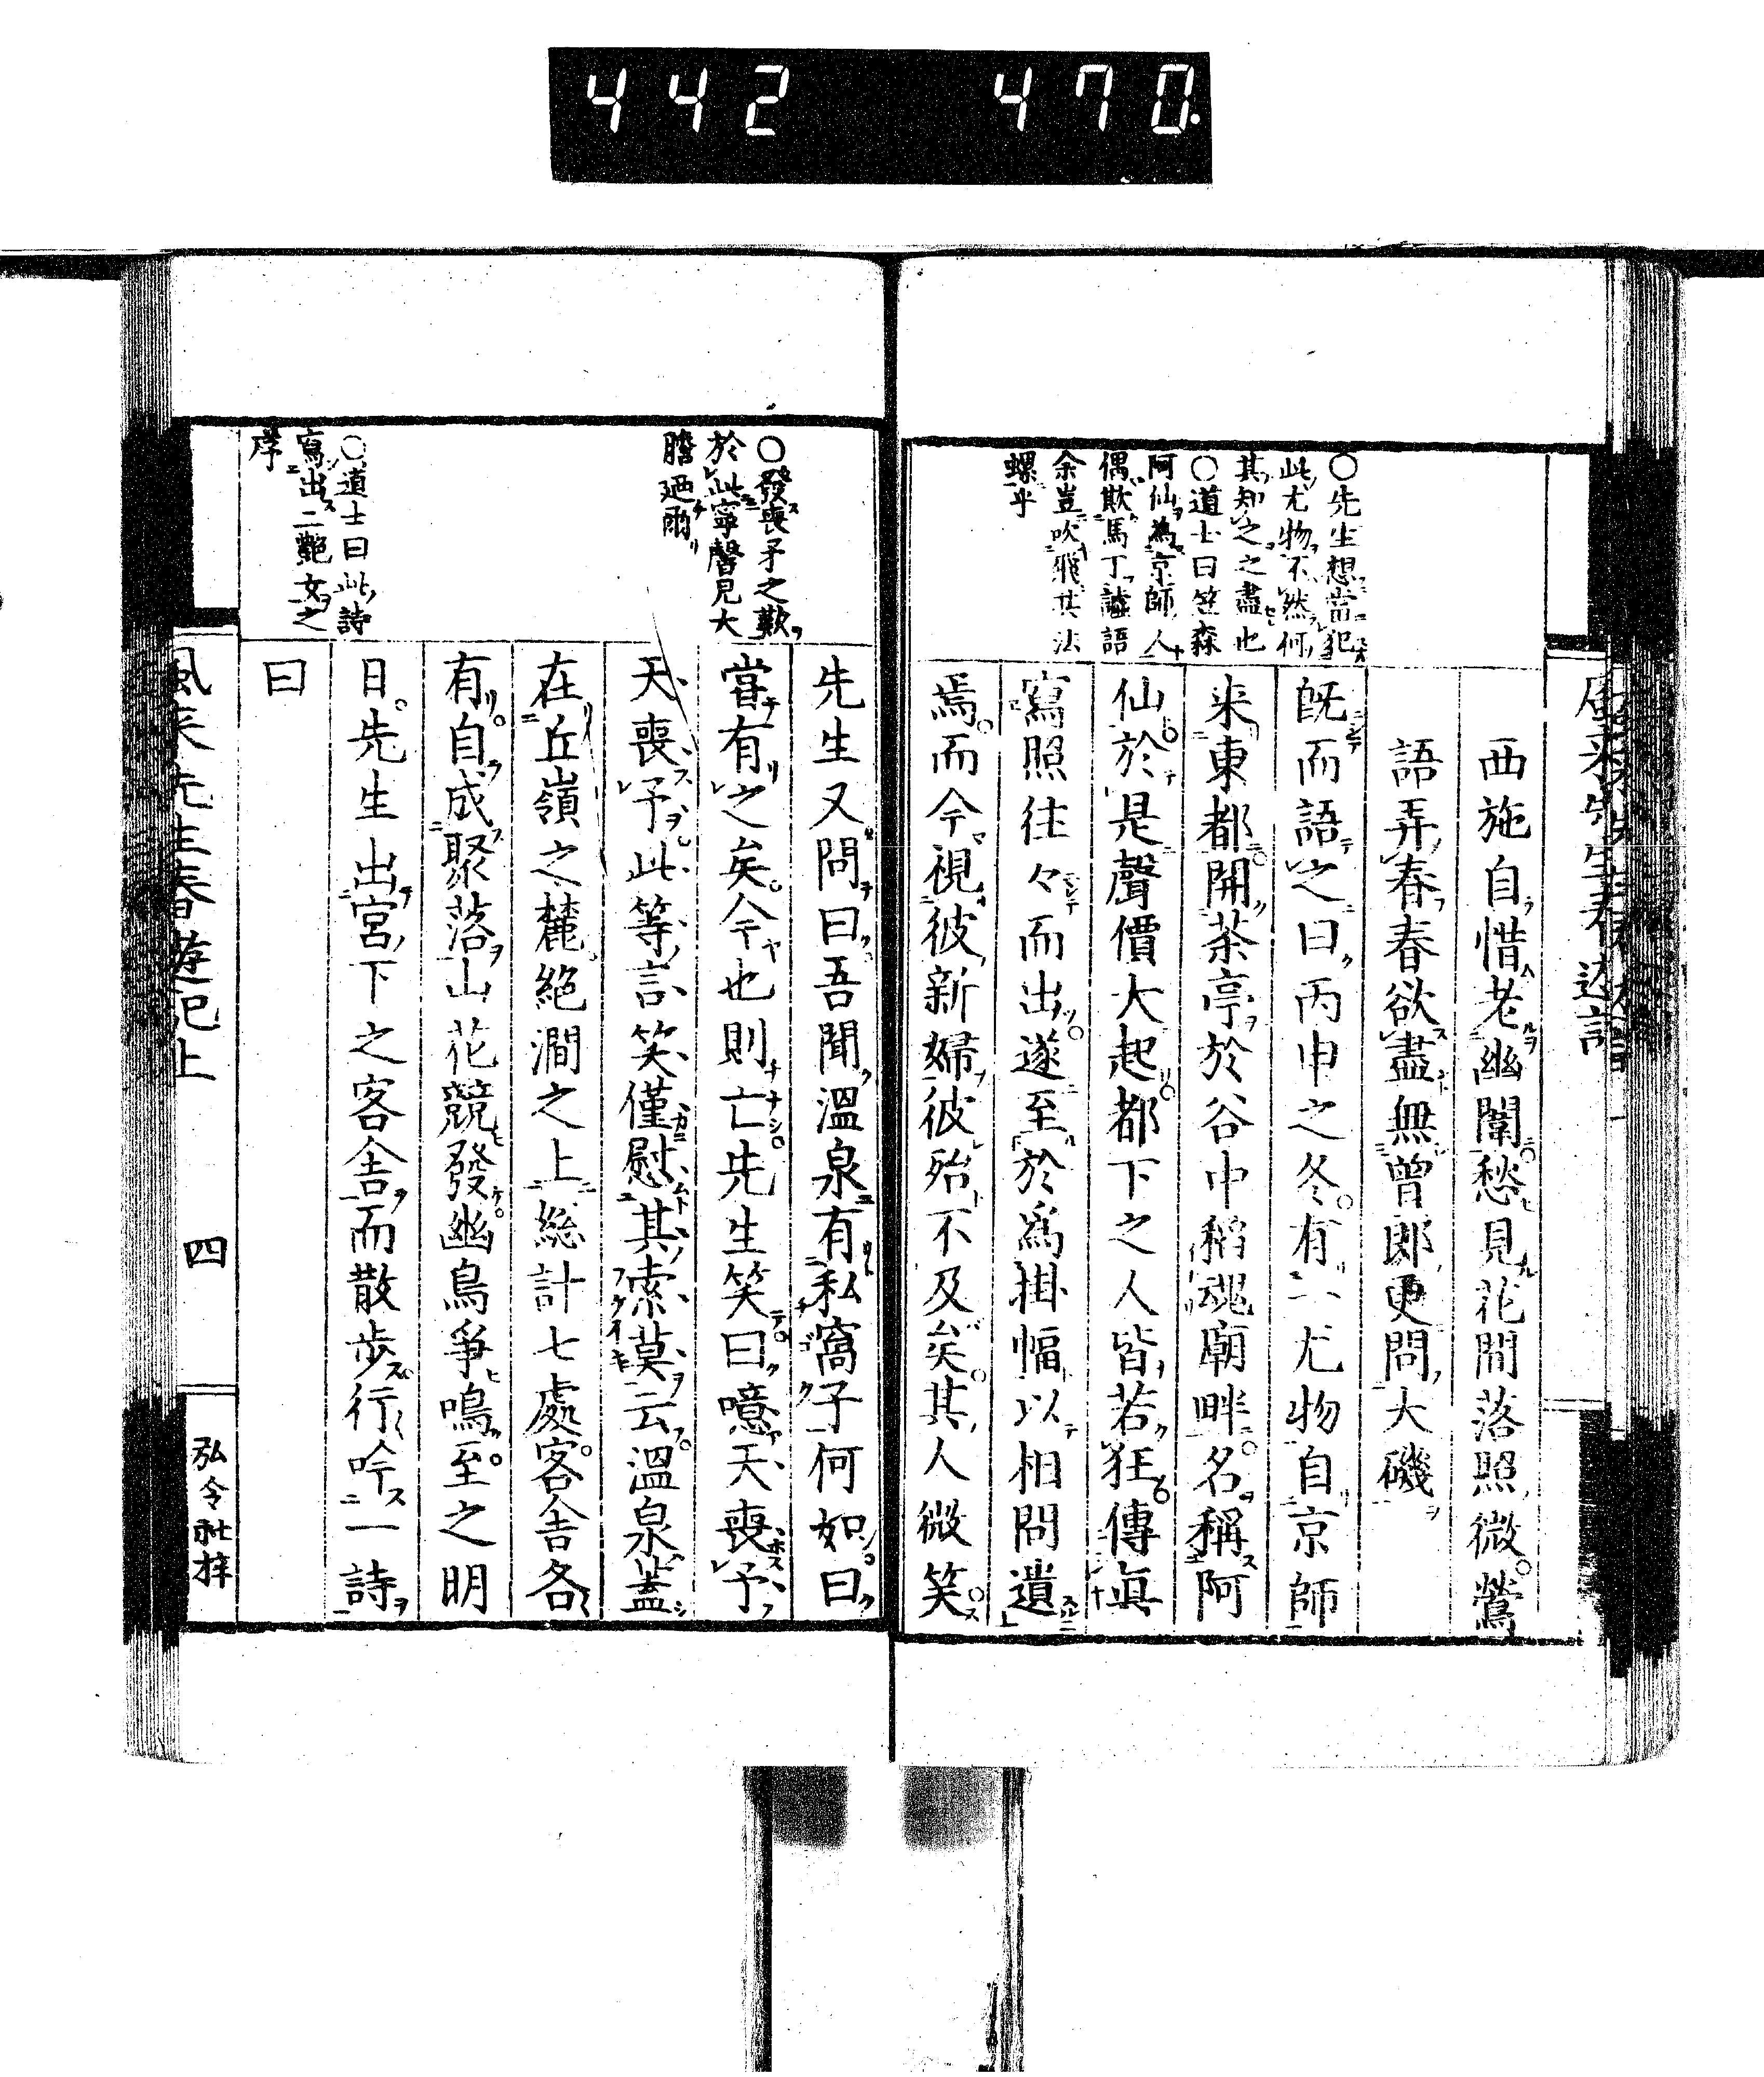 442 470.
○先生想當犯
此尤物不然何
其知之之盡也
○道士曰笠森
阿仙為京師人
偶欺馬丁謔語
余豈吹飛其法
螺乎
西施自惜老幽闈愁見花間落照微鶯
語弄春春欲盡無曾郎更問大磯
既而語之曰丙申之冬有二尤物自京師
来東都開茶亭於谷中稻魂廟畔名稱阿
仙於是聲價大起都下之人皆若狂傳真
寫照往々而出遂至於爲掛幅以相問遺
焉而今視彼新婦彼殆不及矣其人微笑
○發喪予之歎
於此寧馨見大
膽廼爾
○道士曰此詩
寫出二艷女之
序
先生又問曰吾聞溫泉有私窩子何如曰
當有之矣今也則亡先生笑曰噫天喪予
天喪予此等言笑僅慰其索莫云溫泉蓋
在丘嶺之麓絕澗之上總計七處客舎各
有自成聚落山花競發幽鳥爭鳴至之明
日先生出宮下之客舎而散步行吟一詩
曰
風来先生春遊記上
四
弘令社梓